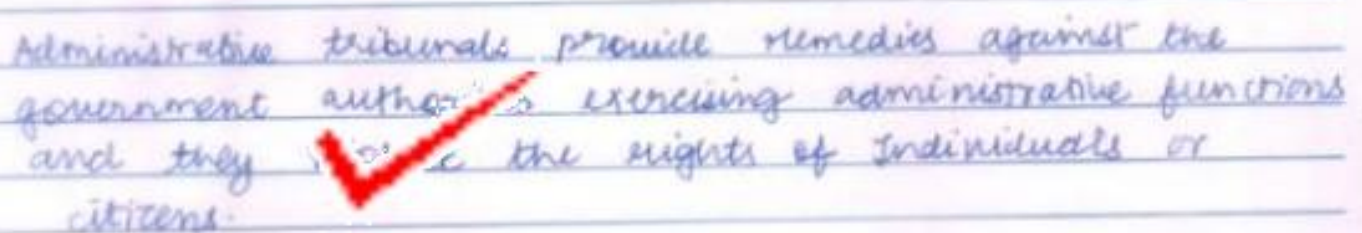 Administrative tribunals provide remedies against the
government exercising administrative functions
and they the rights of Individuals or
citizens.